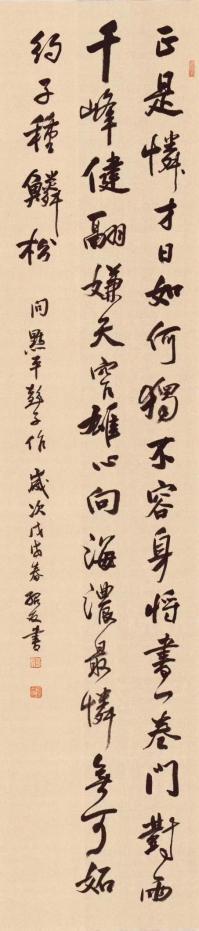 正是憐才日如何獨不容身將書一卷門對雨
千峰健翮嫌天窄雄心向海濃最憐無可妬
約子種鱗松 問平彭子作 歲次戊戌春書